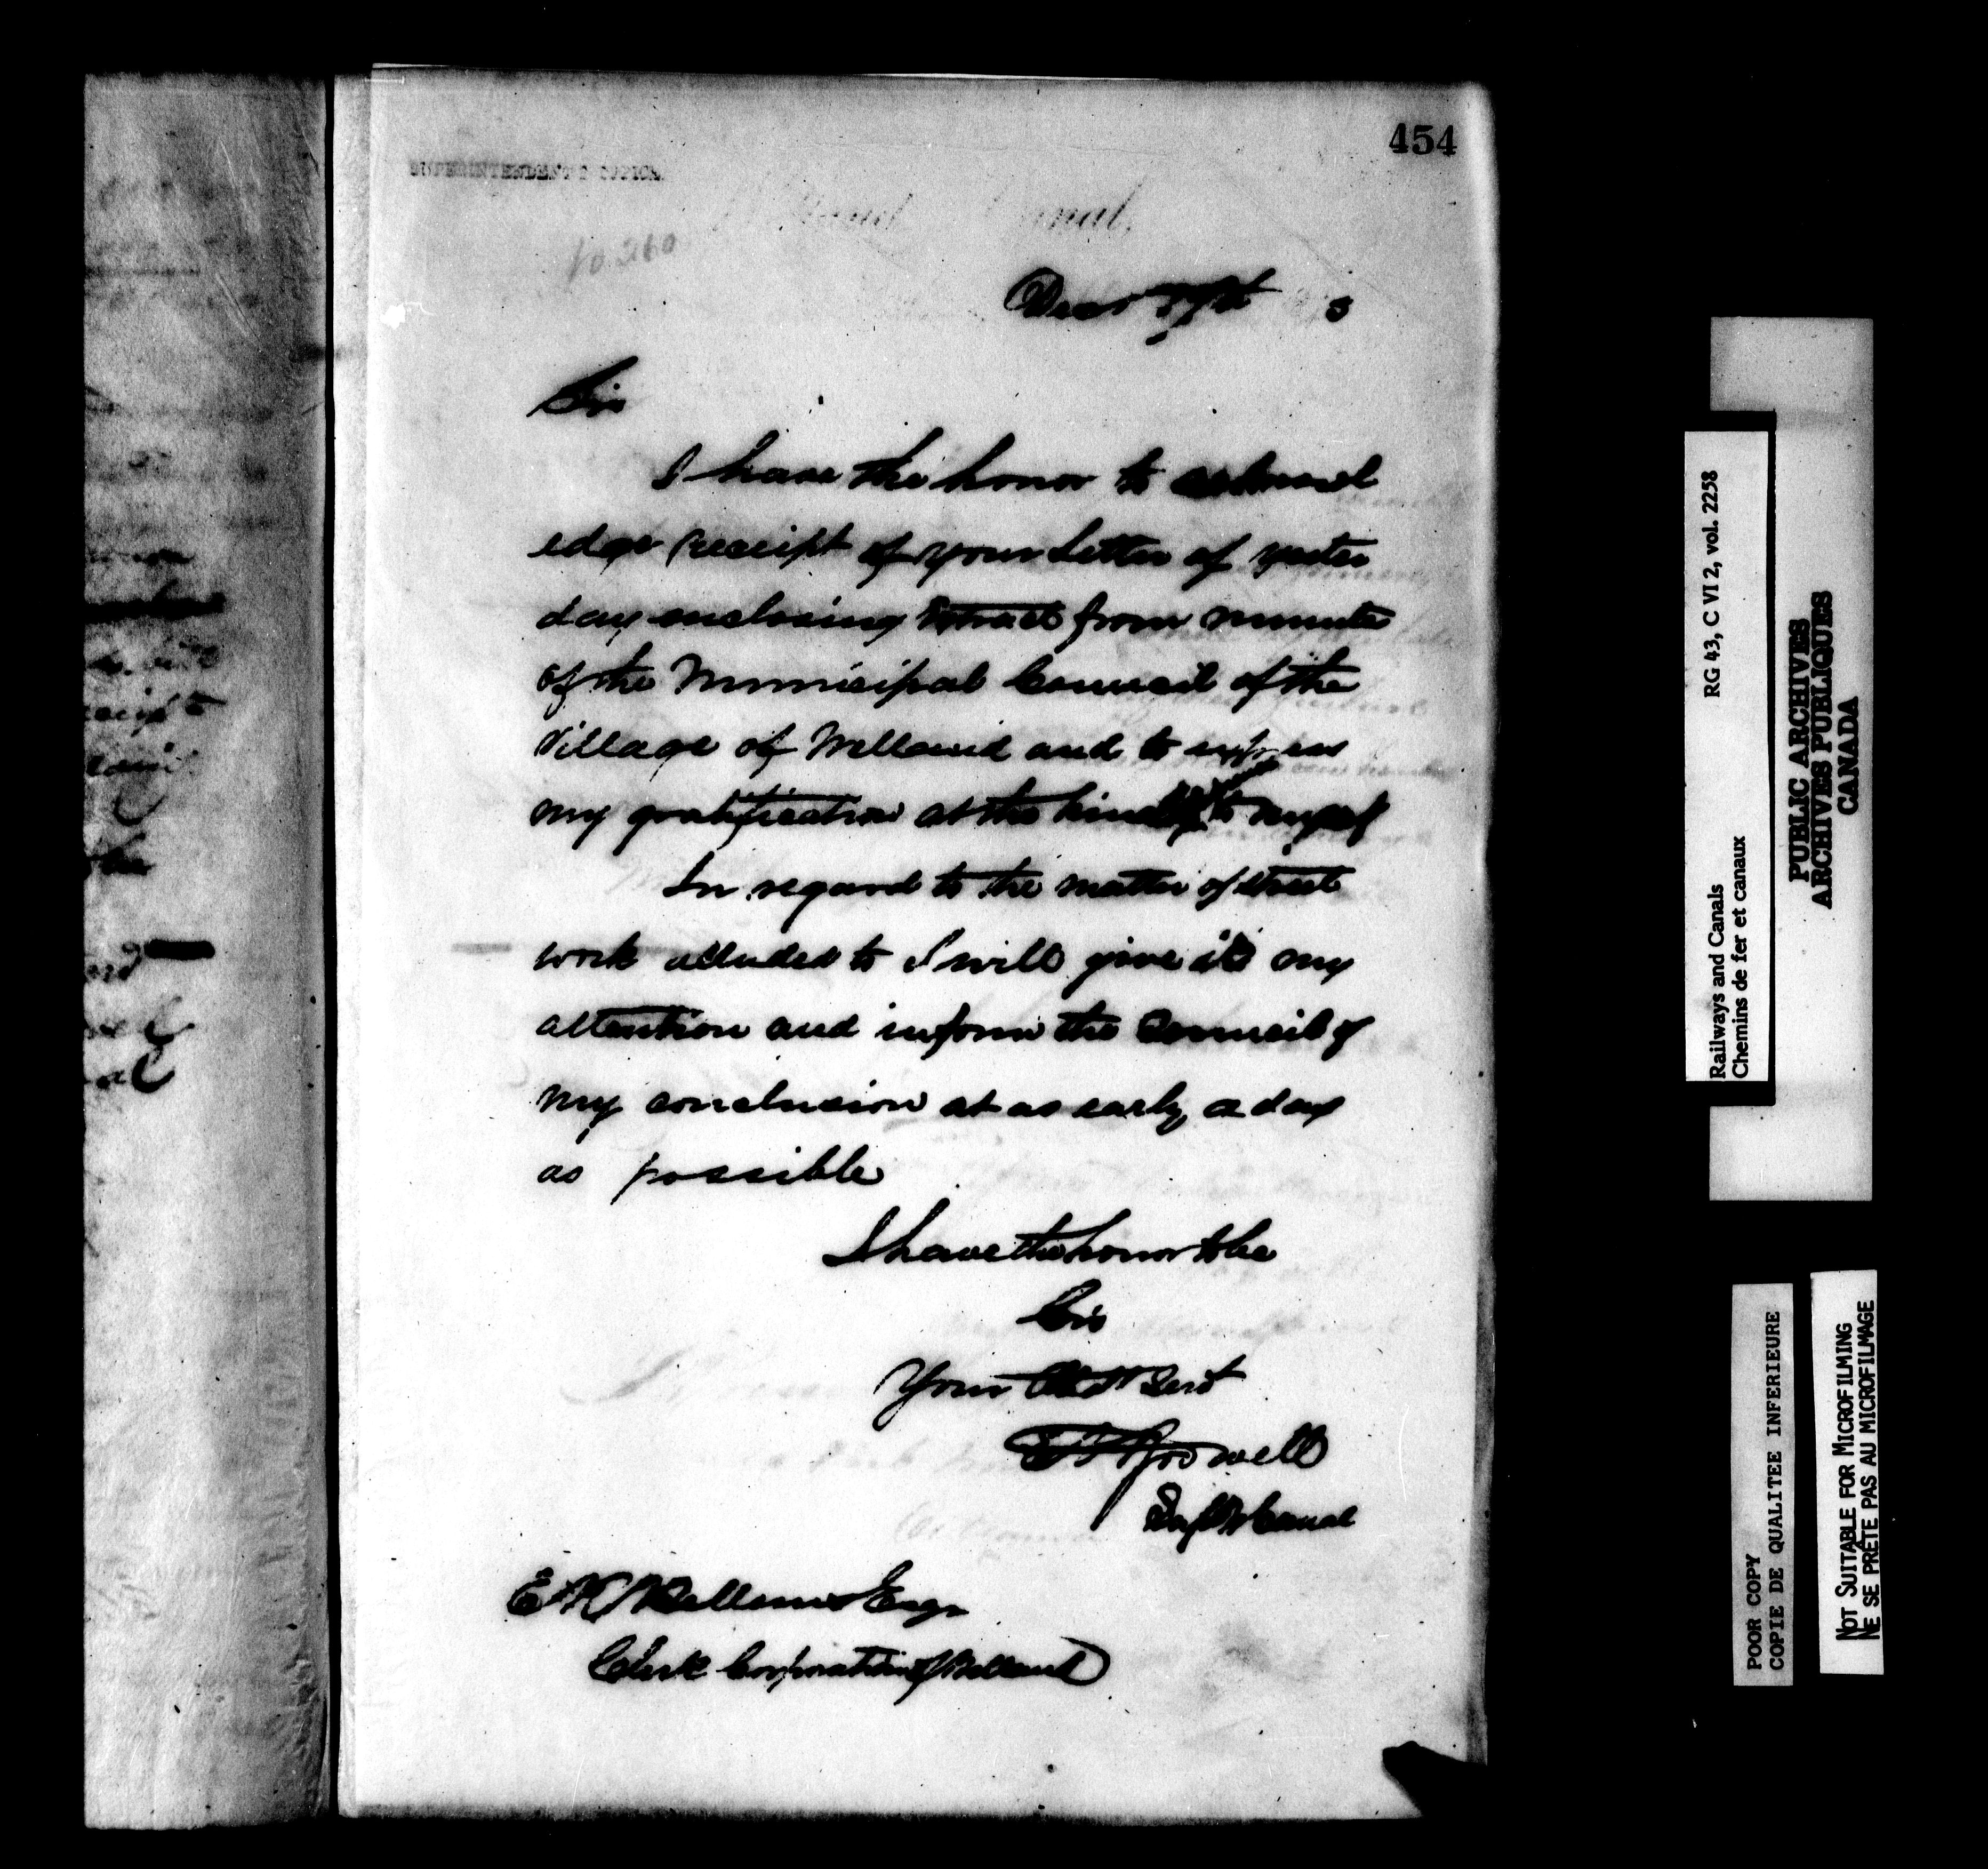 454
SUPERINTENDENT'S OFFICE
Canal,
No. 260
Decr 3
Sir
I have the honor to acknowl
edge receipt of your Letter of yester
day enclosing Extract from minutes
of the Municipal Council of the
Village of Welland and to express
my gratification at the to myself
In regard to the matter of street
work alluded to I will give it my
attention and inform the Council of
my conclusion at as early a day
as possible
I have the honor to be
Sir
Your Obdt Servt
Supt W Canal
E Esqr
Clerk Corporation of Welland
Railways and Canals RG 43, C VI 2, vol. 2258
Chemins de fer et canaux
PUBLIC ARCHIVES
ARCHIVES PUBLIQUES
CANADA
POOR COPY
COPIE DE QUALITEE INFERIEURE
NOT SUITABLE FOR MICROFILMING
NE SE PRÊTE PAS AU MICROFILMAGE